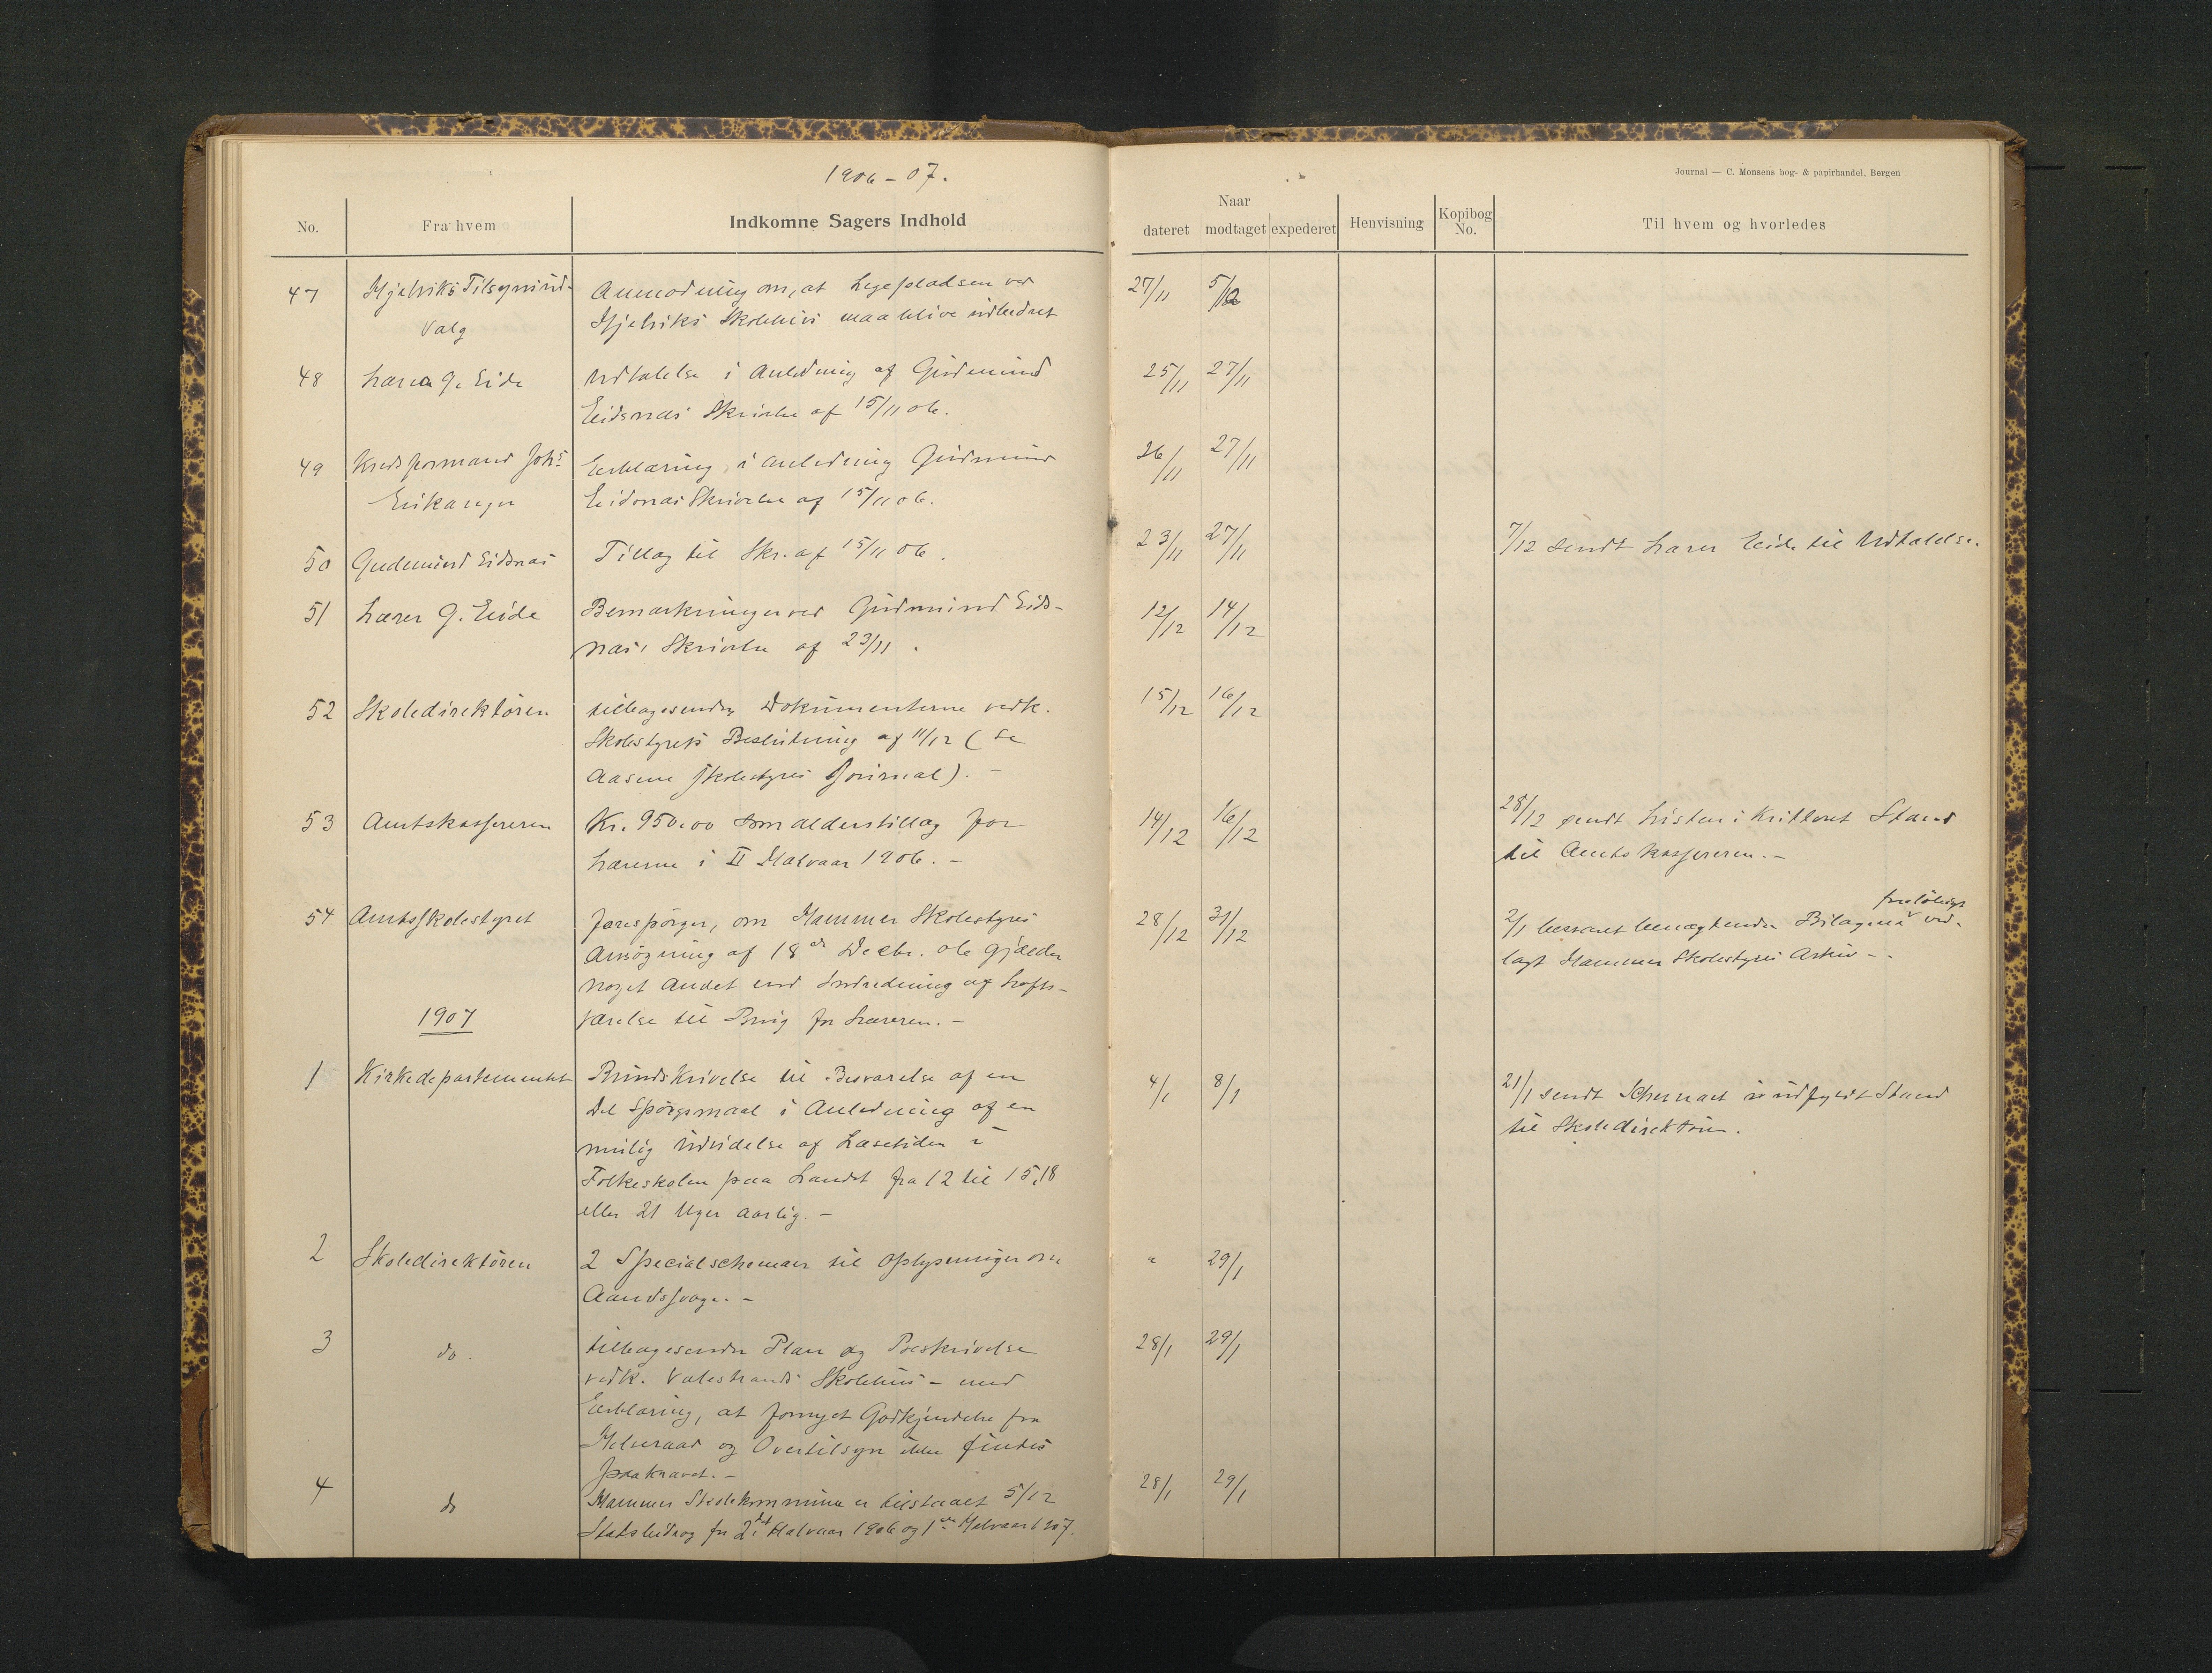 1906-07.
Journal — C. Monsens bog- & papirhandel, Bergen
No.
Fra hvem
Indkomne Sagers Indhold
Naar
dateret modtaget expederet
Henvisning
Kopibog No.
Til hvem og hvorledes
47 Hjelviks Tilsynsud- Anmodning om, at Legepladsen ved 27/11 5/12
valg Hjelviks Skolehus maa blive udbedret
48 Lærer G. Eide Udtalelse i Anledning af Gudmund 25/11 27/11
Eidsnæs Skrivelse af 15/11 06.
49 Kredsformand Johs Erklæring i Anledning Gudmund 26/11 27/11
Eikanger Eidsnæs Skrivelse af 15/11 06.
50 Gudmund Eidsnæs Tillæg til Skr. af 15/11 06. 23/11 27/11 7/12 sendt Lærer Eide til Udtalelse.
51 Lærer G. Eide Bemærkninger ved Gudmund Eids- 12/12 14/12
næs' Skrivelse af 23/11.
52 Skoledirektøren tilbagesender Dokumenterne vedk. 15/12 16/12
Skolestyrets Beslutning af 11/12 (se
Aasene Skolestyres Journal). -
53 Amtskassereren Kr. 950.00 som alderstillæg for 14/12 16/12 28/12 sendt Listen i kvitteret Stand
Lærerne i II Halvaar 1906. - til Amtskassereren. -
54 Amtsskolestyret forespørger, om Hammer Skolestyres 28/12 31/12 2/1 besvaret benægtende. Bilagene foreløbigt ved-
Ansøgning af 18de Decbr. 06 gjælder lagt Hammer Skolestyres Arkiv - -
noget andet end Indredning af Lofts-
værelse til Brug for Læreren. -
1907
1 Kirkedepartementet Rundskrivelse til Besvarelse af en 4/1 8/1 21/1 sendt Schemaet i udfyldt Stand
Del Spørgsmaal i Anledning af en til Skoledirektøren.
mulig Udvidelse af Læsetiden i
Folkeskolen paa Landet fra 12 til 15, 18
eller 21 Uger aarlig. -
2 Skoledirektøren 2 Specialschemaer til Oplysninger om " 29/1
Aandssvage. -
3 do. tilbagesender Plan og Beskrivelse 28/1 29/1
vedk. Valestrands Skolehus - med
Erklæring, at fornyet Godkjendelse fra
Helseraad og Overtilsyn ikke findes
paakrævet. -
4 do Hammer Skolekommune er tilstaaet 5/12 28/1 29/1
Statsbidrag for 2det Halvaar 1906 og 1ste Halvaar 1907.